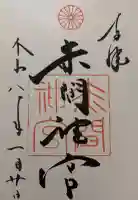 奉拝
赤間神宮
令和八年一月廿日